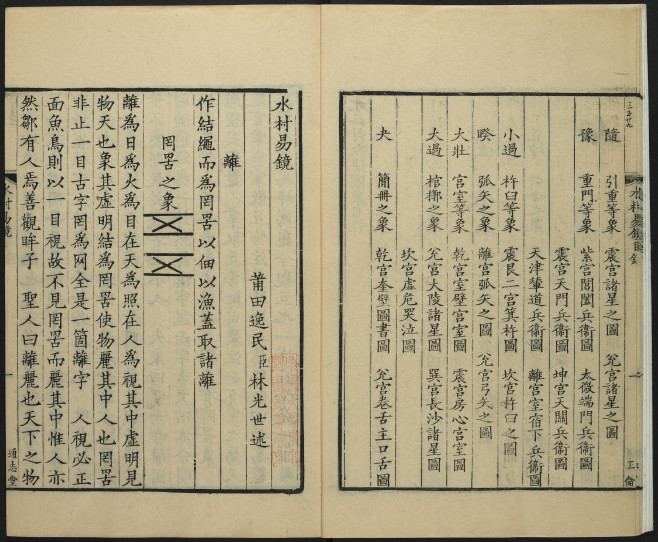 隨　引重等象　震宮諸星之圖　兊宮諸星之圖
豫　重門等象　紫宮閶闔兵衞圖　太微端門兵衞圖
震宮天門兵衞圖　坤宮天闕兵衞圖
天津輦道兵衞圖　離宮室宿下兵衞圖
小過　杵臼等象　震艮二宮箕杵圖　坎宮杵臼之圖
睽　弧矢之象　離宮弧矢之圖　兊宮弓矢之圖
大壯　宮室等象　乾宮室壁宮室圖　震宮房心宮室圖
大過　棺槨之象　兊宮大陵諸星圖　巽宮長沙諸星圖
坎宮虛危哭泣圖
夬　簡冊之象　乾宮奎壁圖書圖　兊宮卷舌主口舌圖
水村易鏡
莆田逸民臣林光世述
離
作結繩而爲罔罟以佃以漁蓋取諸離
罔罟之象
離爲日爲火爲目在天爲照在人爲視其中虛明見
物天也象其虛明結爲罔罟使物麗其中人也罔罟
非止一目古字罔爲网全是一箇離字　人視必正
面魚鳥則以一目視故不見罔罟而麗其中惟人亦
然鄒有人焉善觀眸子　聖人曰離麗也天下之物
水村易鏡
一
通志堂